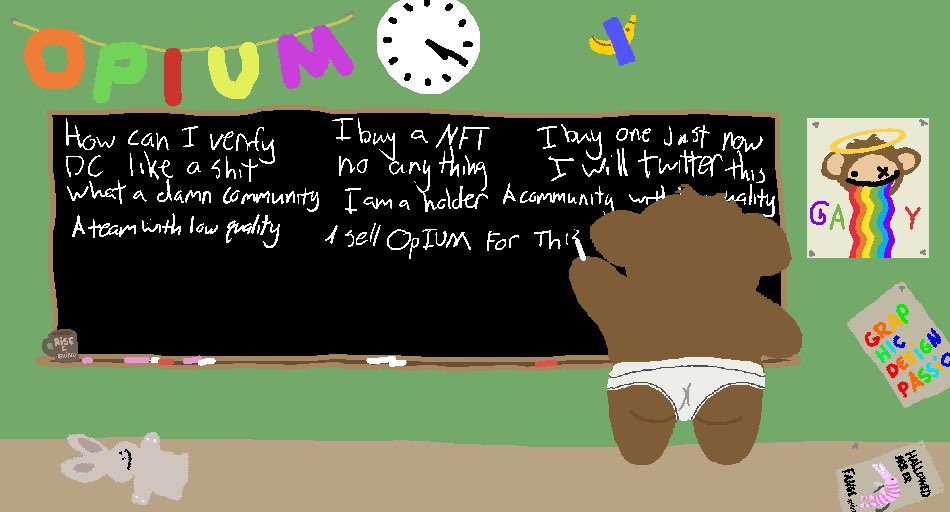 OPIUM
How can I verify
DC like a shit
what a damn community
A team with low quality
I buy a NFT
no anything
I am a holder
I sell OpIUM For This
I buy one just now
I will twitter this
A community with quality
RISE &
GAY
GRAP
HIC
DESIGN
PASSIO
HALLOWED